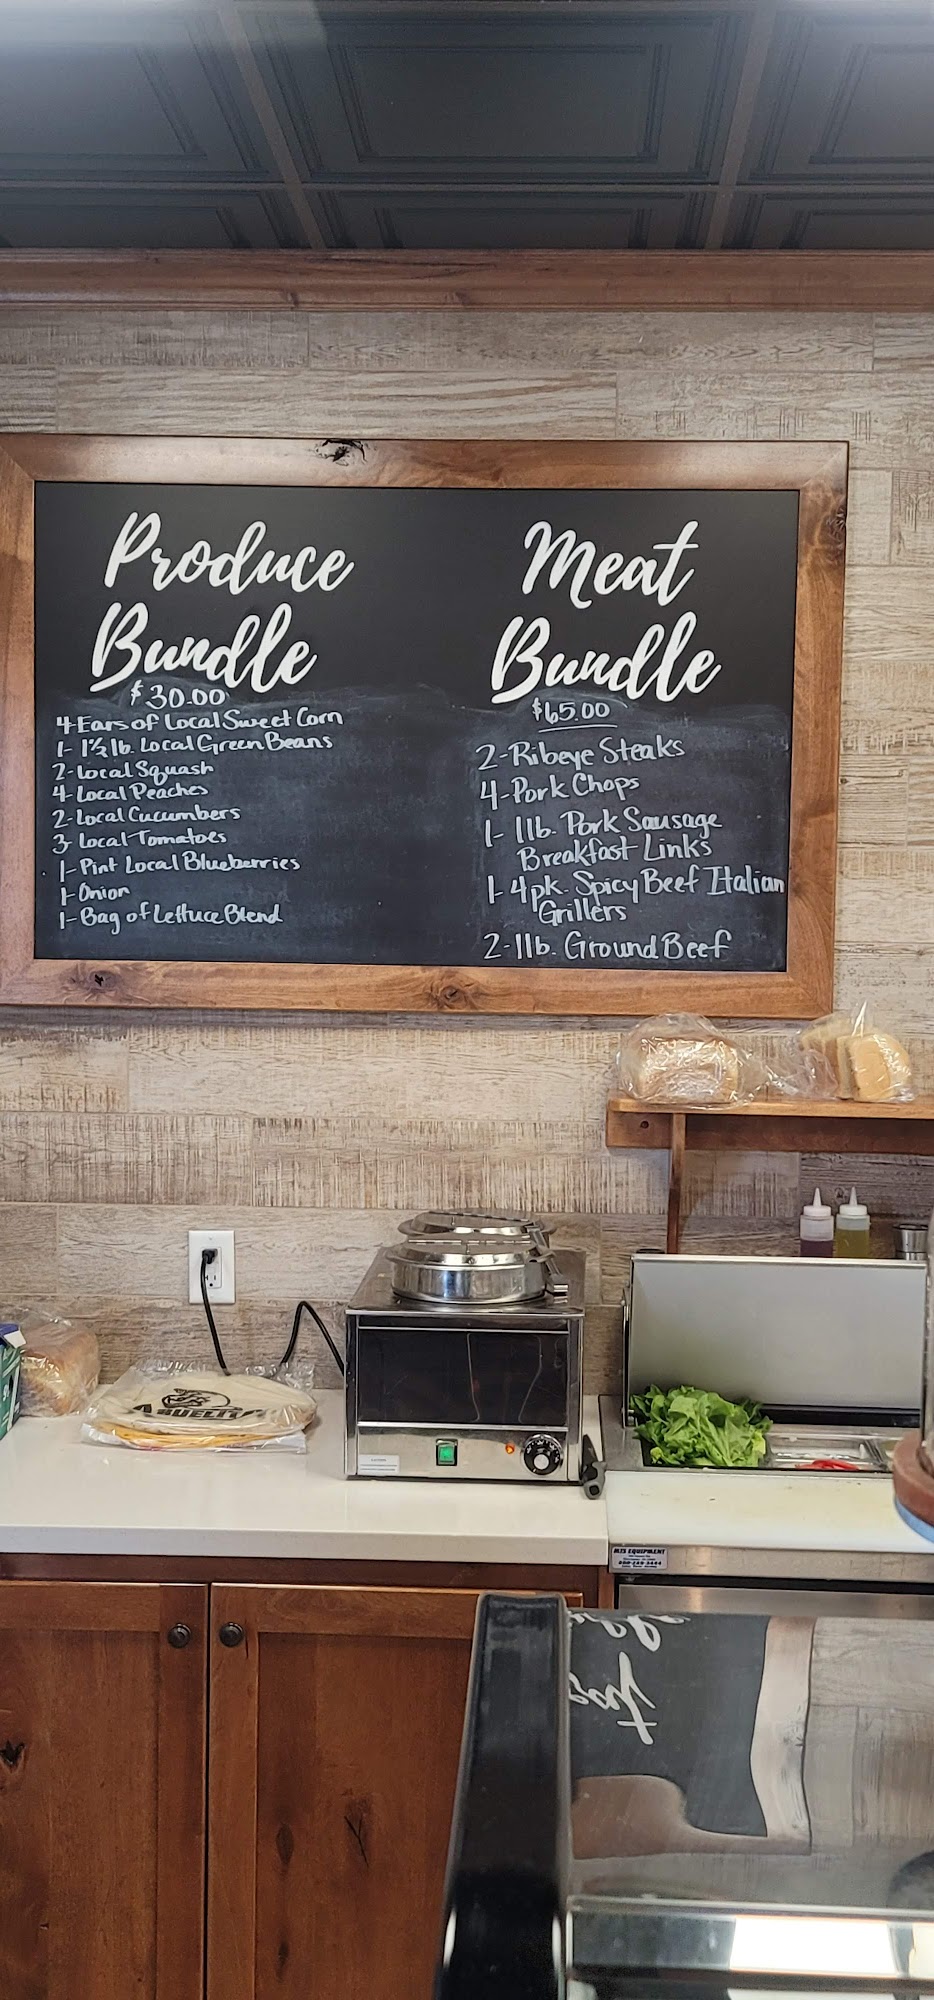 Produce
Bundle
$30.00
4-Ears of Local Sweet Corn
1- 1½ lb. Local Green Beans
2-Local Squash
4-Local Peaches
2-Local Cucumbers
3-Local Tomatoes
1-Pint Local Blueberries
1-Onion
1-Bag of Lettuce Blend
Meat
Bundle
$65.00
2-Ribeye Steaks
4-Pork Chops
1- 1lb. Pork Sausage
Breakfast Links
1-4pk. Spicy Beef Italian
Grillers
2-1lb. Ground Beef
MTS EQUIPMENT